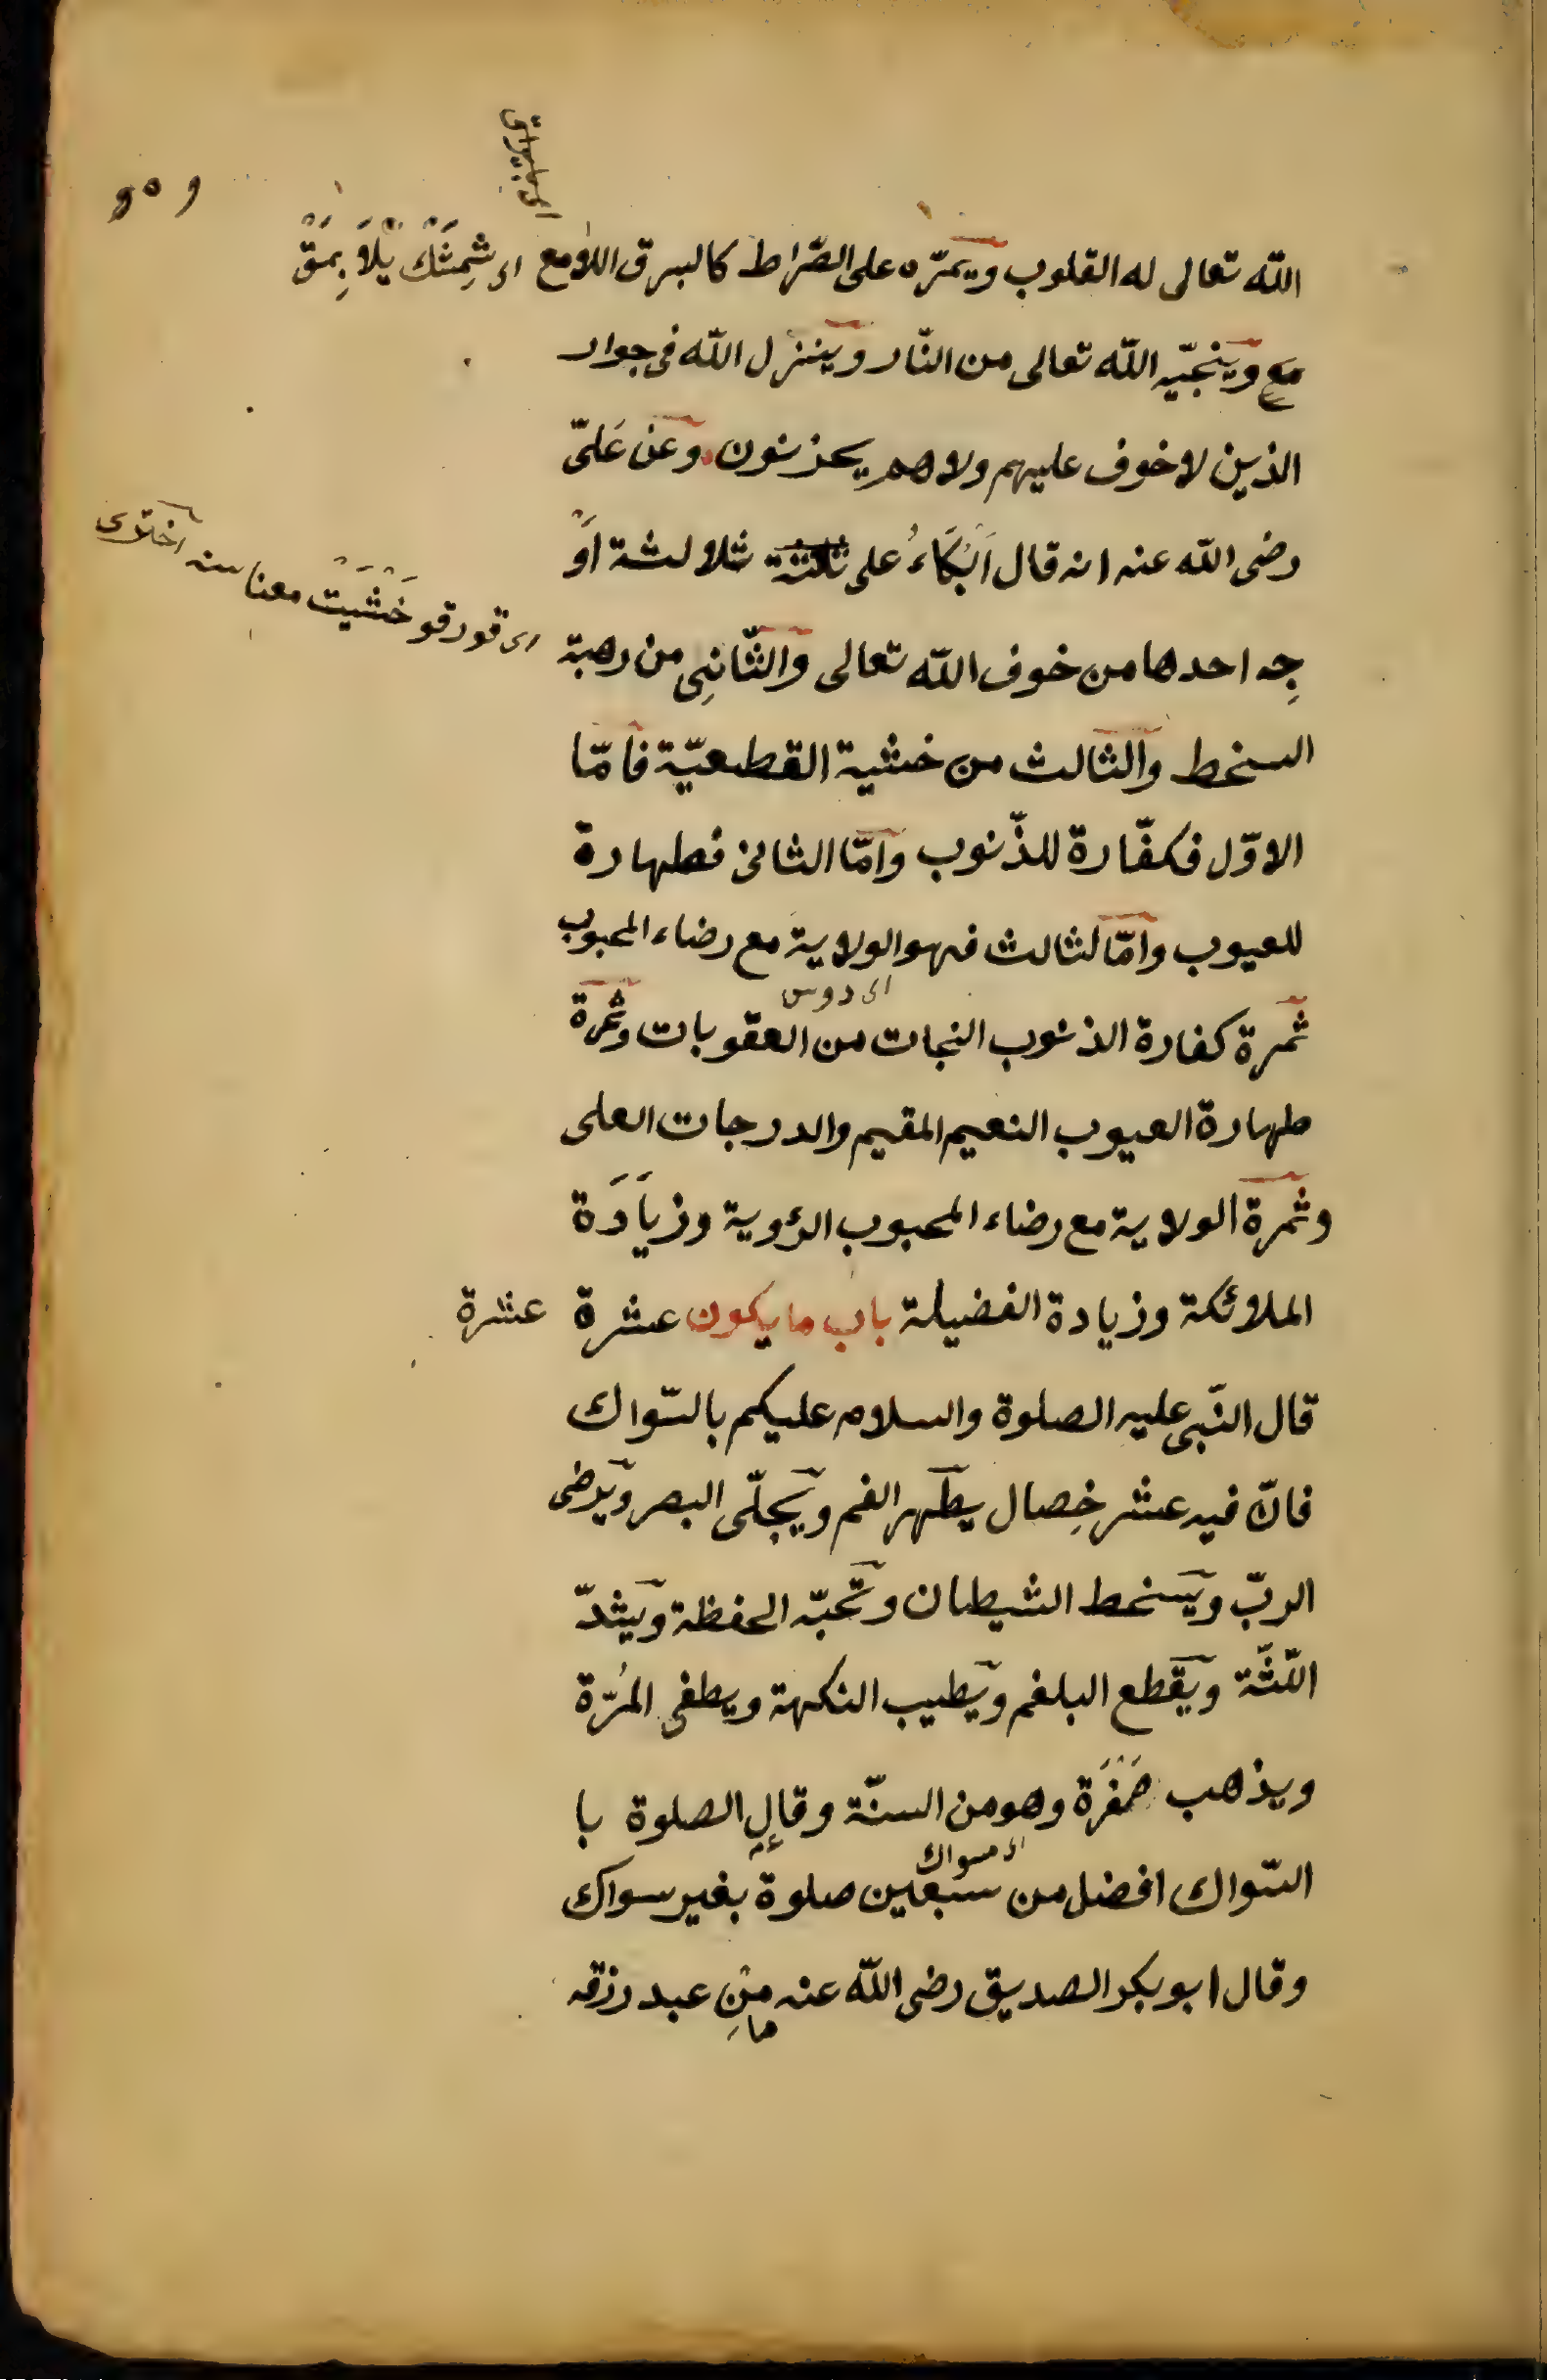 الله تعالى له القلوب ويمرّه على الصّراط كالبرق اللامع
مع وينجّيه الله تعالى من النّار وينزل الله فى جوار
الذين لا خوف عليهم ولا هم يحزنون وعن علىّ
رضى الله عنه انه قال اَلْبُكَاءُ على ثلثة ثلالثة اَوْ
جه احدها من خوف الله تعالى والثّانِى من رهبة
السخط والثالث من خشية القطعيّة فامّا
الاوّل فكفّارة للذّنوب وامّا الثانى فطهارة
للعيوب وامّا لثالث فهو الولاية مع رضاء المحبوب
ثمرة كفارة الذنوب النجات من العقوبات وثمرة
طهارة العيوب النعيم المقيم والدرجات العلى
وثمرة الولاية مع رضاء المحبوب الرؤية وزيَادَة
الملائكة وزيادة الفضيلة باب ما يكون عشرة عشرة
قال النّبى عليه الصلوة والسلام عليكم بالسّواك
فانّ فيه عشر خِصال يطهر الفم ويجلّى البصر ويرضى
الربّ ويسخط الشيطان وتحبّه الحفظة ويشدّ
اللّثّة ويقطع البلغم ويطيب النكهة ويطفى المُرّة
ويذهب صَفْرَة وهو من السنّة وقال الصلوة با
السّواك افضل من سبعين صلوة بغير سواك
وقال ابو بكر الصديق رضى الله عنه من عبد رزقه
ما
اى شِمِشَك يْلاَ بِمَقْ
اى قورقو خَشْيَتْ معناسنه
اى دوس
اى مسواك